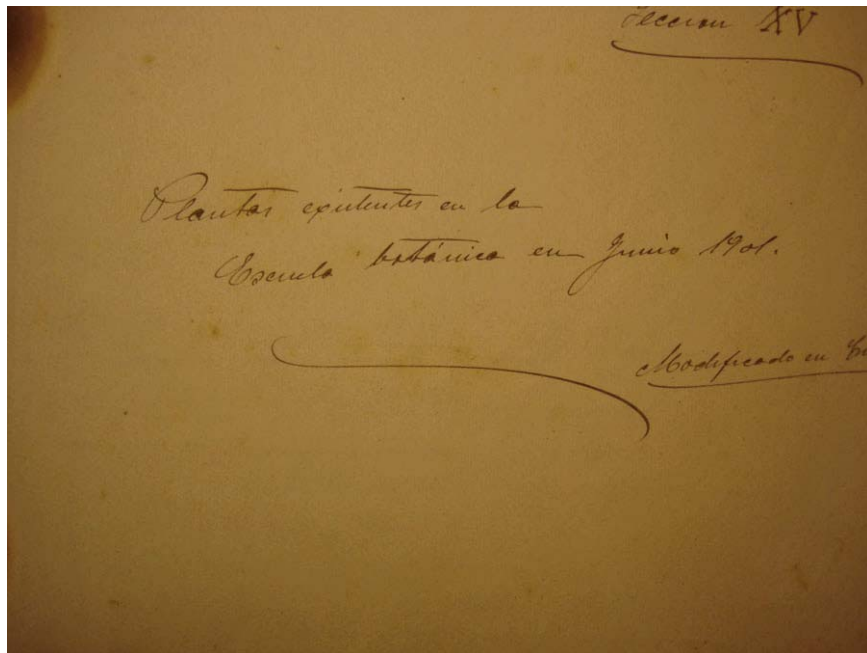 Seccion XV
Plantas existentes en la
Escuela botánica en Junio 1901.
Modificado en